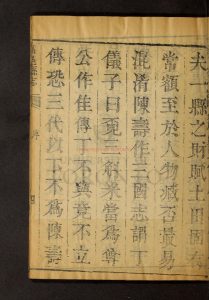 夫一縣之財賦土田固有
常額至於人物臧否最易
混淆陳壽作三國志謂丁
儀子曰覓千斛米當爲尊
公作佳傳丁不與竟不立
傳恐三代以下不爲陳壽